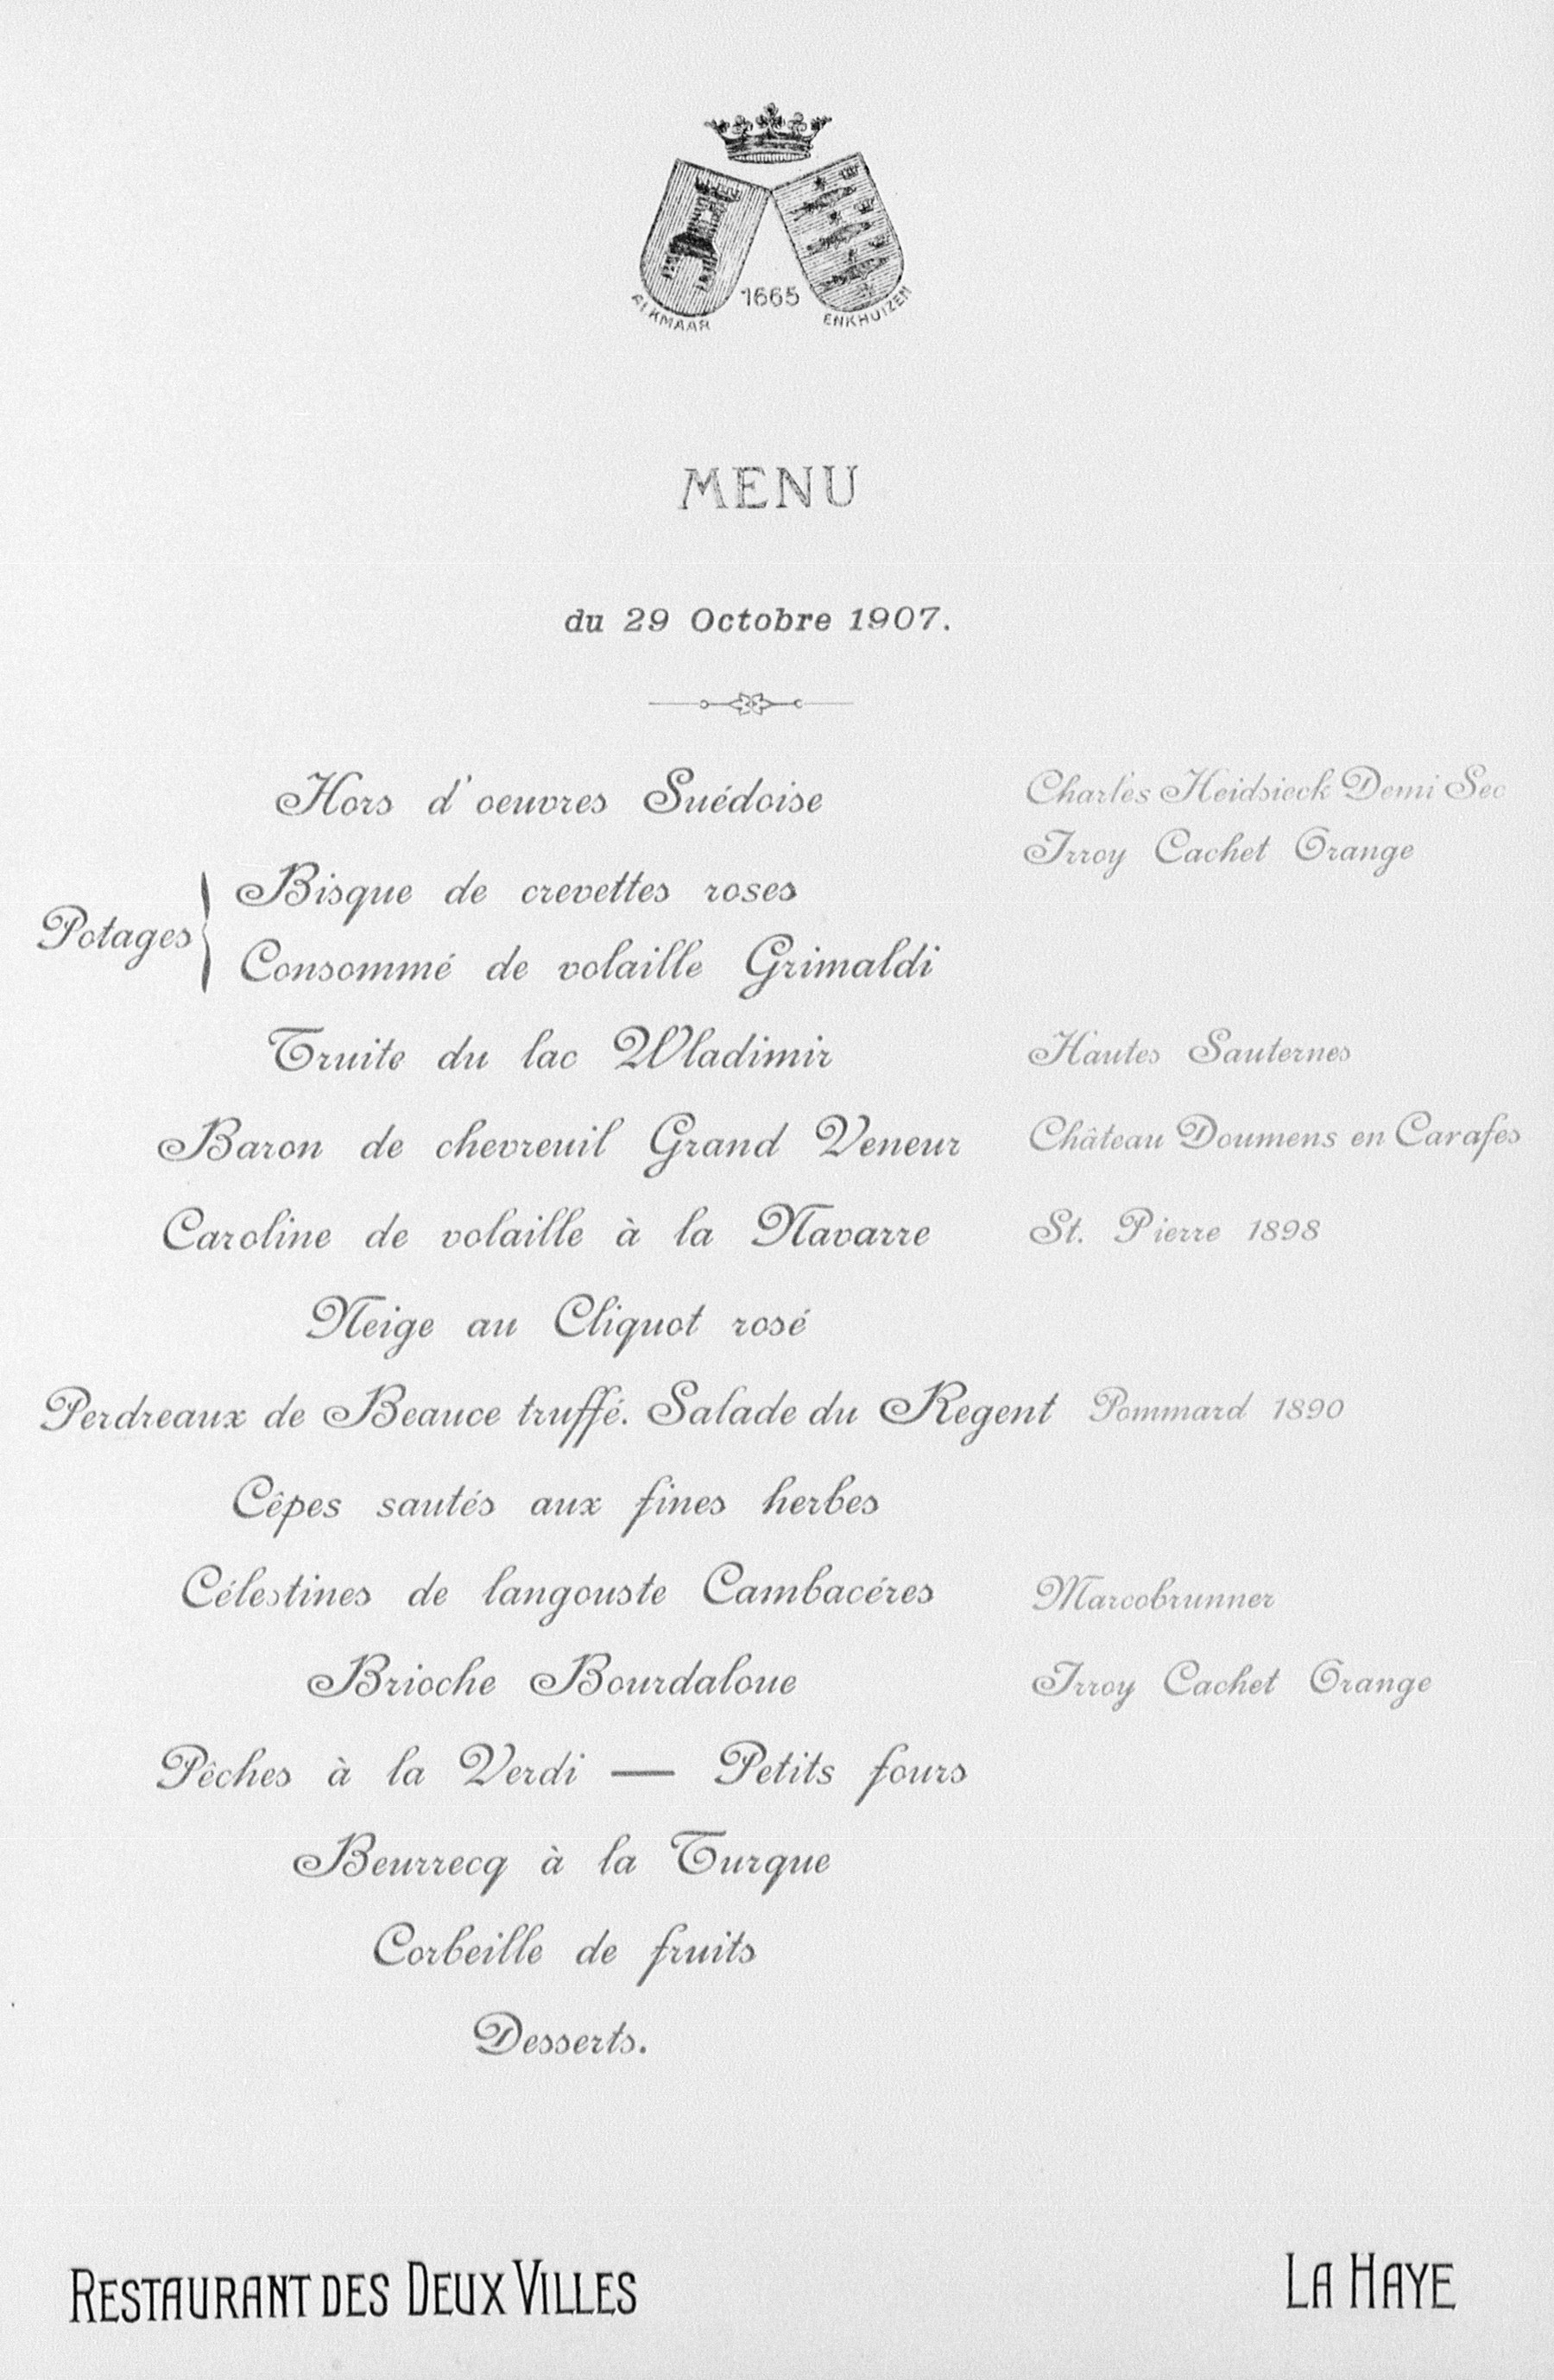 ALKMAAR 1665 ENKHUIZEN
MENU
du 29 Octobre 1907.
Hors d'oeuvres Suédoise
Charles Heidsieck Demi Sec
Irroy Cachet Orange
Potages
Bisque de crevettes roses
Consommé de volaille Grimaldi
Truite du lac Wladimir
Hautes Sauternes
Baron de chevreuil Grand Veneur
Château Doumens en Carafes
Caroline de volaille à la Navarre
St. Pierre 1898
Neige au Cliquot rosé
Perdreaux de Beauce truffé. Salade du Regent
Pommard 1890
Cêpes sautés aux fines herbes
Célestines de langouste Cambacéres
Marcobrunner
Brioche Bourdaloue
Irroy Cachet Orange
Pêches à la Verdi — Petits fours
Beurrecq à la Turque
Corbeille de fruits
Desserts.
RESTAURANT DES DEUX VILLES
LA HAYE